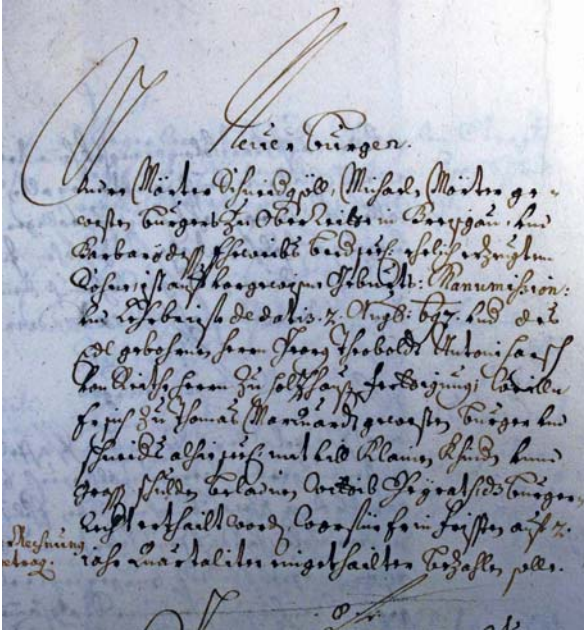 Neuer Burger.
Andre Mörter Schneidgsöll, Michael Mörter ge-
westen Burgers zu Ober in Breisgau, und
Barbara dess Eheweibs beed seel: ehelich erzeugtem
Sohne, ist auf vorgewisne Geburts: Manumission:
und Lehrbriefe de datis. 2. Augh: 697. und des
gebohrnen Herrn Georg Theobald Antoni
von Herrn zu Holzhausen fertigung, weillen
Er sich zu Thomas Marquardt gewesten Burger und
Schneiders alhie seel: mit vill Klainen Khinder unnd
gross schulden beladnen Wittib Heyrathet, dz Burger
Recht erthailt worden, worfür Er in fristen auf 2.
Jahr quartaliter eingethailter bezahlen solle.
Rechnung
8 f